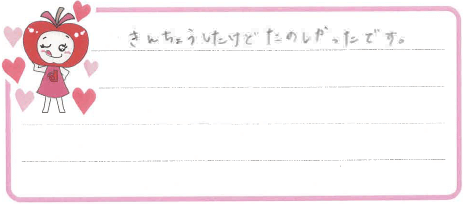 きんちょうしたけどたのしかったです。